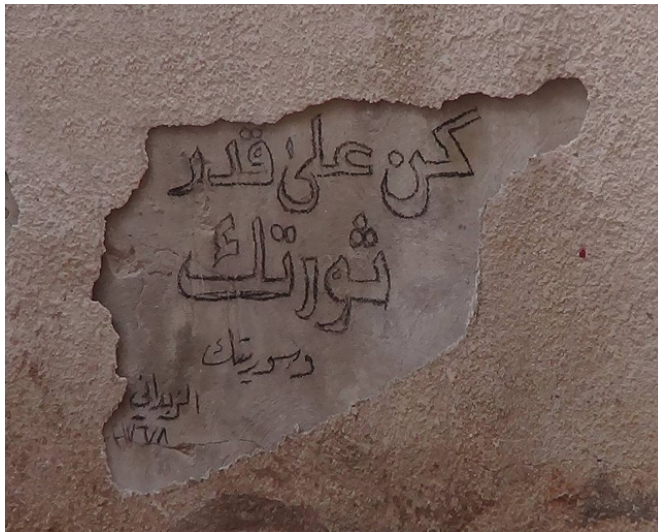 كن على قدر
ثورتك
وسوريتك
الزبداني